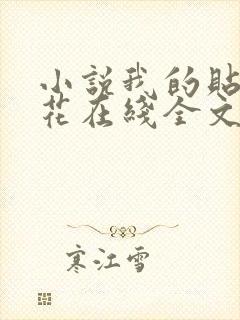 小説我的貼
花在綫全文
寒江雪